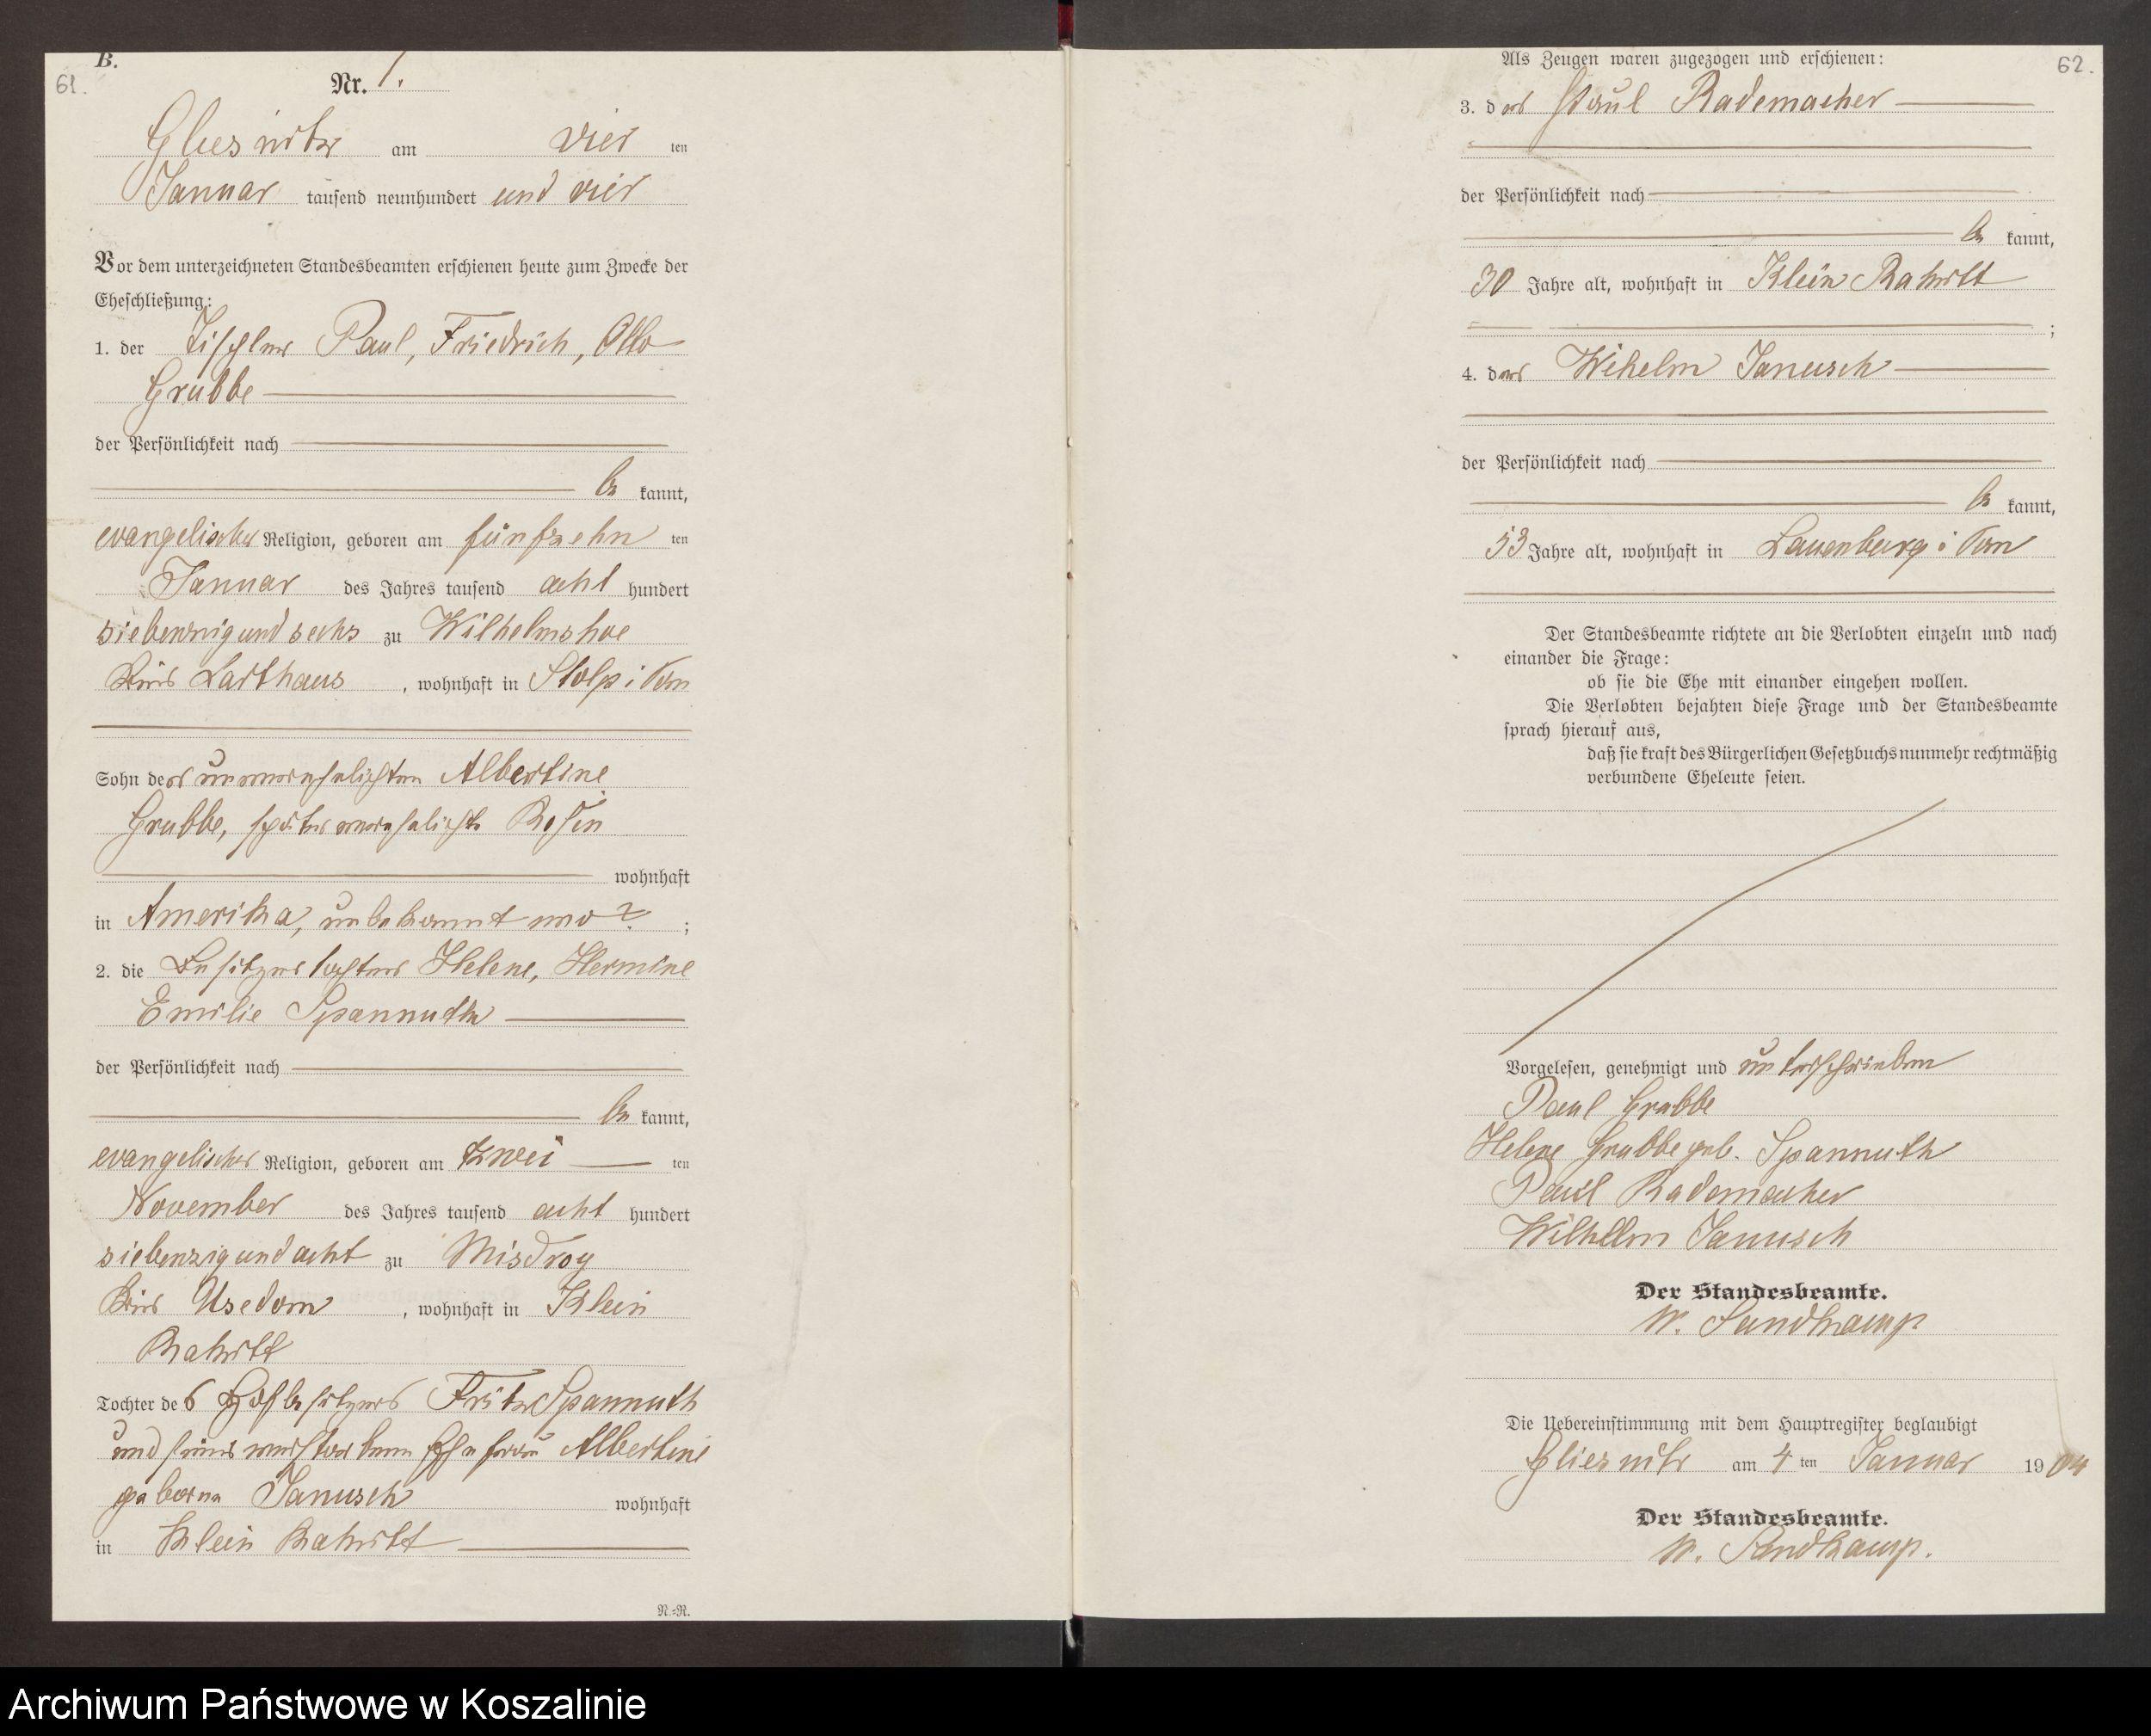 B.
61.
Nr. 1.
Gliesnitz am vier ten
Januar tausend neunhundert und vier
Vor dem unterzeichneten Standesbeamten erschienen heute zum Zwecke der
Eheschließung:
1. der Tischler Paul, Friedrich, Otto
Grubbe
der Persönlichkeit nach
be kannt,
evangelischer Religion, geboren am fünfzehn ten
Januar des Jahres tausend acht hundert
siebenzig und sechs zu Wilhelmshoe
Kreis Karthaus, wohnhaft in Stolp i Pom
Sohn der unverehelichten Albertine
Grubbe, später verehelichte Rosin
wohnhaft
in Amerika, unbekannt wo?;
2. die Besitzertochter Helene, Hermine
Emilie Spannuth
der Persönlichkeit nach
be kannt,
evangelischer Religion, geboren am zwei ten
November des Jahres tausend acht hundert
siebenzig und acht zu Misdroy
Kreis Usedom, wohnhaft in Klein
Rakitt
Tochter des Hofbesitzers Fritz Spannuth
und seiner verstorbenen Ehefrau Albertine
geborne Janusch wohnhaft
in Klein Rakitt
N.=R.
62.
Als Zeugen waren zugezogen und erschienen:
3. der Paul Rademacher
der Persönlichkeit nach
be kannt,
30 Jahre alt, wohnhaft in Klein Rakitt
;
4. der Wihelm Janusch
der Persönlichkeit nach
be kannt,
53 Jahre alt, wohnhaft in Lauenburg i Pom
Der Standesbeamte richtete an die Verlobten einzeln und nach
einander die Frage:
ob sie die Ehe mit einander eingehen wollen.
Die Verlobten bejahten diese Frage und der Standesbeamte
sprach hierauf aus,
daß sie kraft des Bürgerlichen Gesetzbuchs nunmehr rechtmäßig
verbundene Eheleute seien.
Vorgelesen, genehmigt und unterschrieben
Paul Grubbe
Helene Grubbe geb. Spannuth
Paul Rademacher
Wilhelm Janusch
Der Standesbeamte.
W. Sandkamp
Die Uebereinstimmung mit dem Hauptregister beglaubigt
Gliesnitz am 4 ten Januar 1904
Der Standesbeamte.
W. Sandkamp.
Archiwum Państwowe w Koszalinie